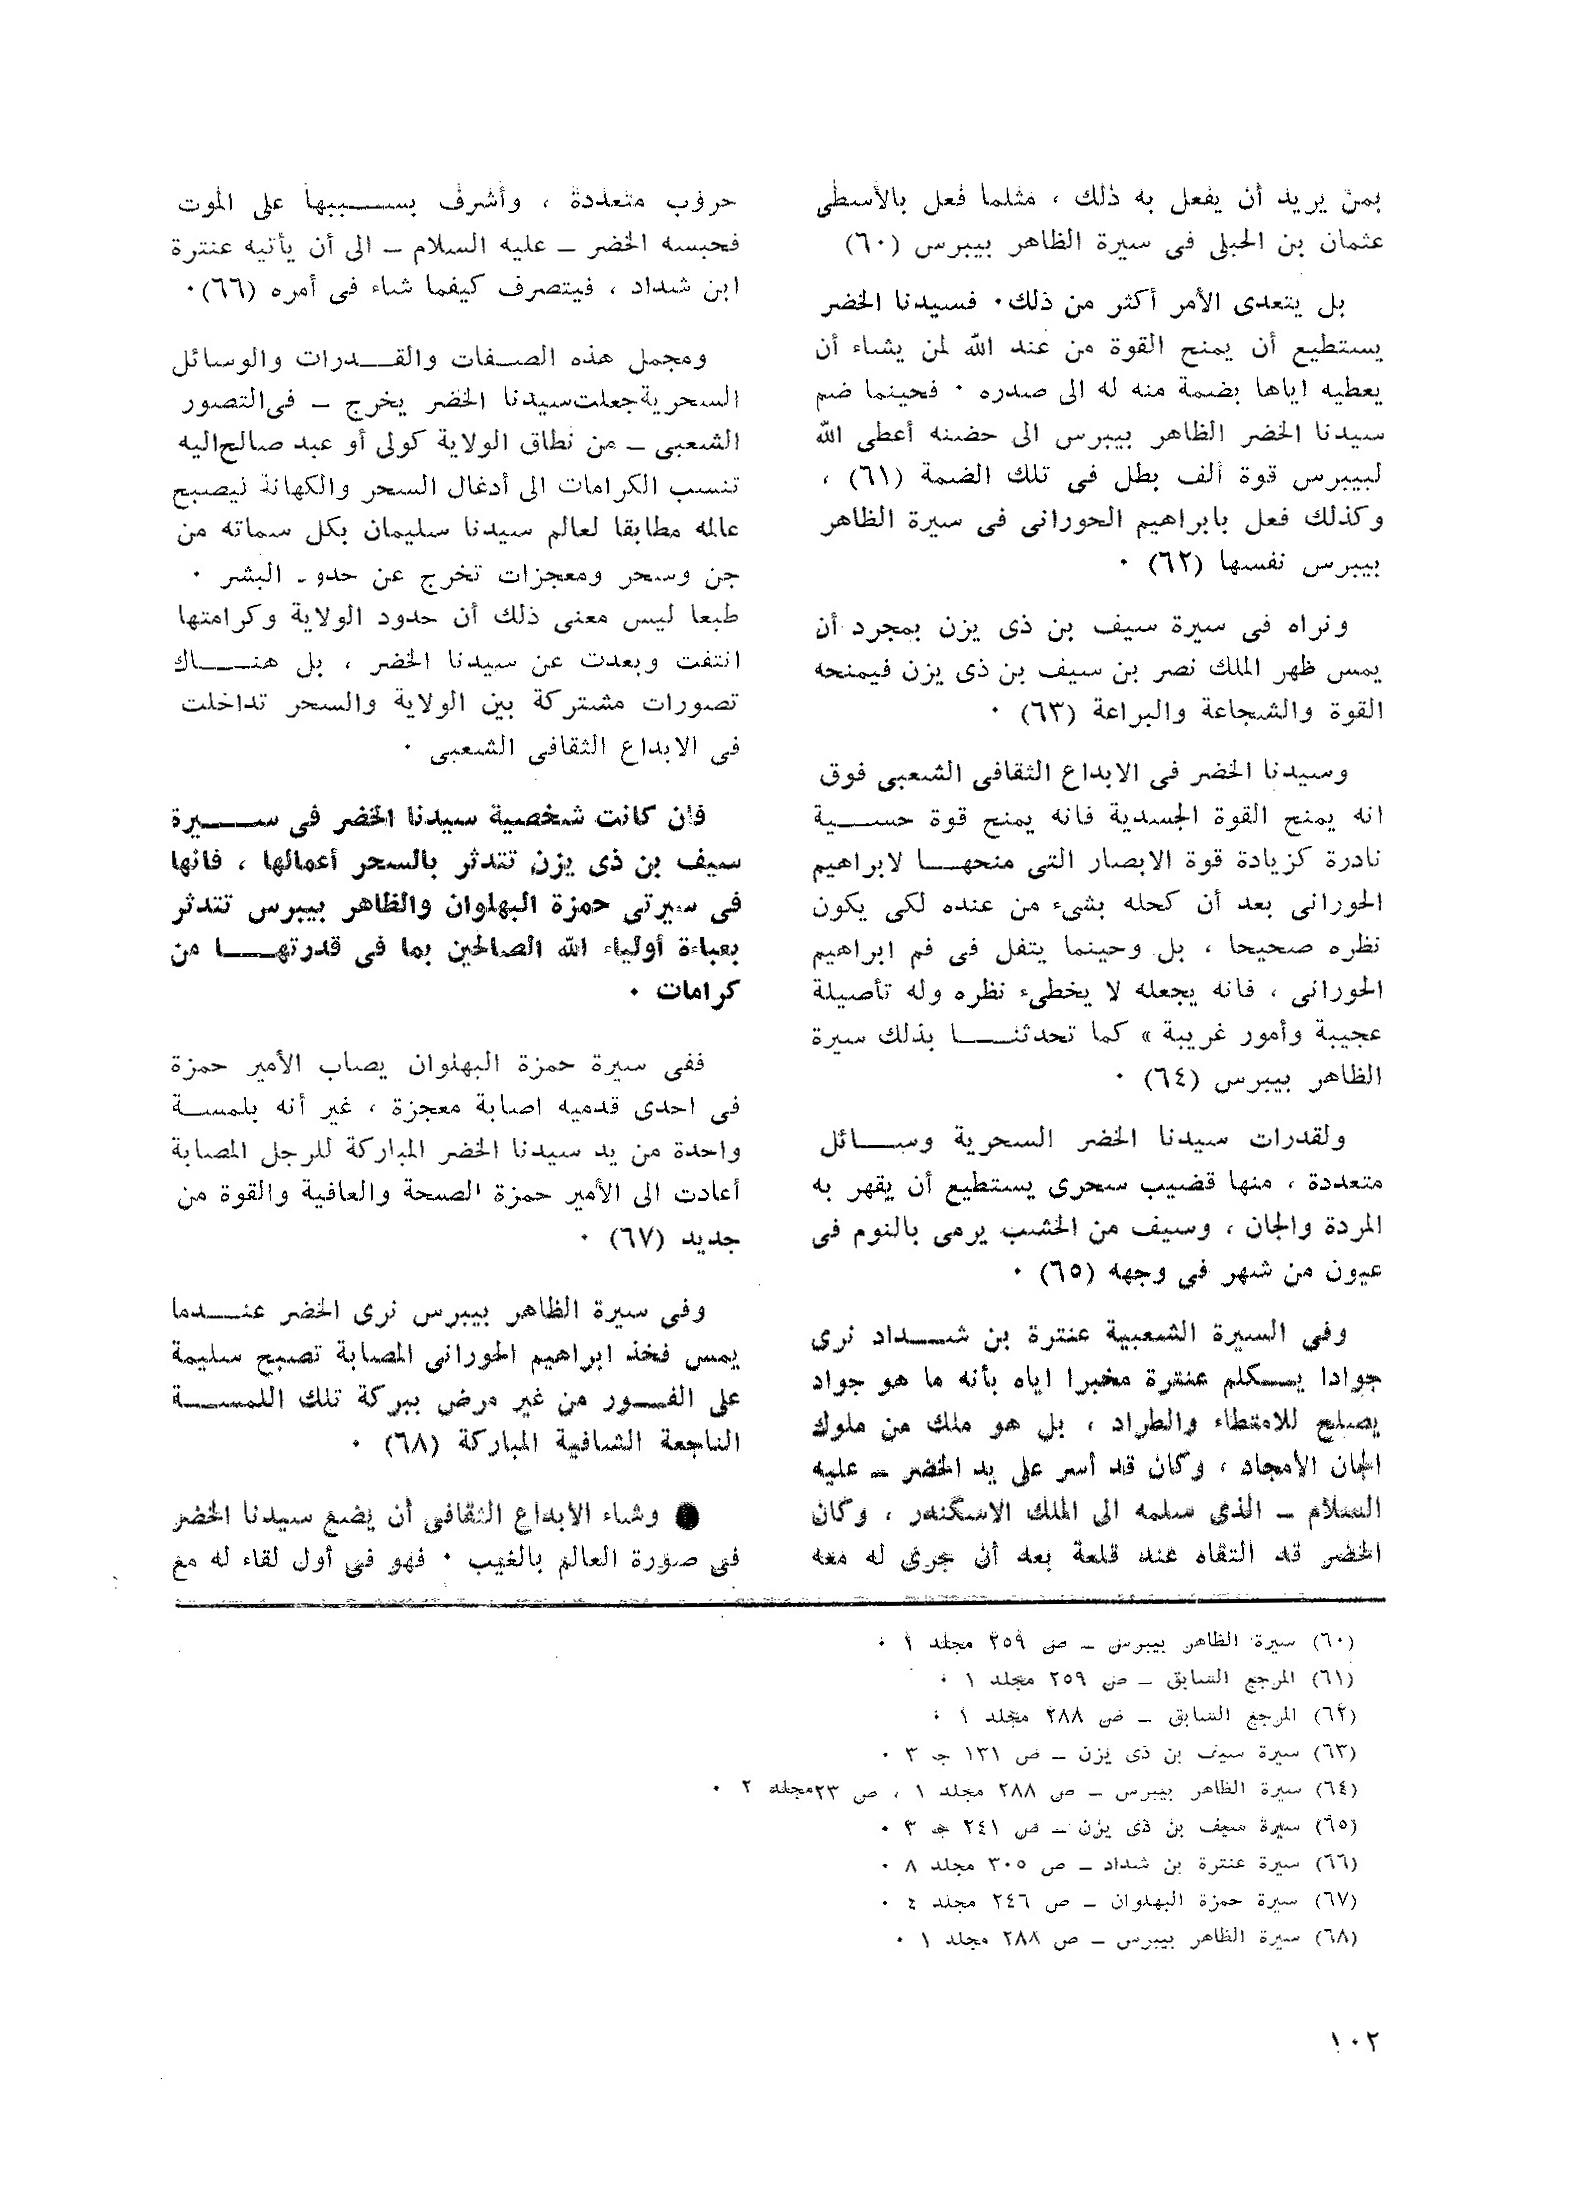 بمن يريد أن يفعل به ذلك ، مثلما فعل بالأسطى
عثمان بن الحبلى فى سيرة الظاهر بيبرس (٦٠)
بل يتعدى الأمر أكثر من ذلك٠ فسيدنا الخضر
يستطيع أن يمنح القوة من عند الله لمن يشاء أن
يعطيه اياها بضمة منه له الى صدره ٠ فحينما ضم
سيدنا الخضر الظاهر بيبرس الى حضنه أعطى الله
لبيبرس قوة ألف بطل فى تلك الضمة (٦١) ،
وكذلك فعل بابراهيم الحورانى فى سيرة الظاهر
بيبرس نفسها (٦٢) ٠
ونراه فى سيرة سيف بن ذى يزن بمجرد أن
يمس ظهر الملك نصر بن سيف بن ذى يزن فيمنحه
القوة والشجاعة والبراعة (٦٣) ٠
وسيدنا الخضر فى الابداع الثقافى الشعبى فوق
انه يمنح القوة الجسدية فانه يمنح قوة حسية
نادرة كزيادة قوة الابصار التى منحها لابراهيم
الحورانى بعد أن كحله بشىء من عنده لكى يكون
نظره صحيحا ، بل وحينما يتفل فى فم ابراهيم
الحورانى ، فانه يجعله لا يخطىء نظره وله تأصيلة
عجيبة وأمور غريبة » كما تحدثنا بذلك سيرة
الظاهر بيبرس (٦٤) ٠
ولقدرات سيدنا الخضر السحرية وسائل
متعددة ، منها قضيب سحرى يستطيع أن يقهر به
المردة والجان ، وسيف من الخشب يرمى بالنوم فى
عيون من شهر فى وجهه (٦٥) ٠
وفى السيرة الشعبية عنترة بن شداد نرى
جوادا يكلم عنترة مخبرا اياه بأنه ما هو جواد
يصلح للامتطاء والطراد ، بل هو ملك من ملوك
الجان الأمجاد ، وكان قد أسر على يد الخضر – عليه
السلام – الذى سلمه الى الملك الاسكندر ، وكان
الخضر قد التقاه عند قلعة بعد أن جرى له معه
حروب متعددة ، وأشرف بسببها على الموت
فحبسه الخضر – عليه السلام – الى أن يأتيه عنترة
ابن شداد ، فيتصرف كيفما شاء فى أمره (٦٦)٠
ومجمل هذه الصفات والقدرات والوسائل
السحرية جعلت سيدنا الخضر يخرج – فى التصور
الشعبى – من نطاق الولاية كولى أو عبد صالح اليه
تنسب الكرامات الى أدغال السحر والكهانة ليصبح
عالمه مطابقا لعالم سيدنا سليمان بكل سماته من
جن وسحر ومعجزات تخرج عن حدو البشر ٠
طبعا ليس معنى ذلك أن حدود الولاية وكرامتها
انتفت وبعدت عن سيدنا الخضر ، بل هناك
تصورات مشتركة بين الولاية والسحر تداخلت
فى الابداع الثقافى الشعبى ٠
فان كانت شخصية سيدنا الخضر فى سيرة
سيف بن ذى يزن تتدثر بالسحر أعمالها ، فانها
فى سيرتى حمزة البهلوان والظاهر بيبرس تتدثر
بعباءة أولياء الله الصالحين بما فى قدرتها من
كرامات ٠
ففى سيرة حمزة البهلوان يصاب الأمير حمزة
فى احدى قدميه اصابة معجزة ، غير أنه بلمسة
واحدة من يد سيدنا الخضر المباركة للرجل المصابة
أعادت الى الأمير حمزة الصحة والعافية والقوة من
جديد (٦٧) ٠
وفى سيرة الظاهر بيبرس نرى الخضر عندما
يمس فخذ ابراهيم الحورانى المصابة تصبح سليمة
على الفور من غير مرض ببركة تلك اللمسة
الناجعة الشافية المباركة (٦٨) ٠
● وشاء الابداع الثقافى أن يضع سيدنا الخضر
فى صورة العالم بالغيب ٠ فهو فى أول لقاء له مع
(٦٠) سيرة الظاهر بيبرس – ص ٢٥٩ مجلد ١ ٠
(٦١) المرجع السابق – ص ٢٥٩ مجلد ١ ٠
(٦٢) المرجع السابق – ص ٢٨٨ مجلد ١ ٠
(٦٣) سيرة سيف بن ذى يزن – ص ١٣١ جـ ٣ ٠
(٦٤) سيرة الظاهر بيبرس – ص ٢٨٨ مجلد ١ ، ص ٢٣ مجلد ٢ ٠
(٦٥) سيرة سيف بن ذى يزن – ص ٢٤١ جـ ٣ ٠
(٦٦) سيرة عنترة بن شداد – ص ٣٠٥ مجلد ٨ ٠
(٦٧) سيرة حمزة البهلوان – ص ٢٤٦ مجلد ٤ ٠
(٦٨) سيرة الظاهر بيبرس – ص ٢٨٨ مجلد ١ ٠
١٠٢